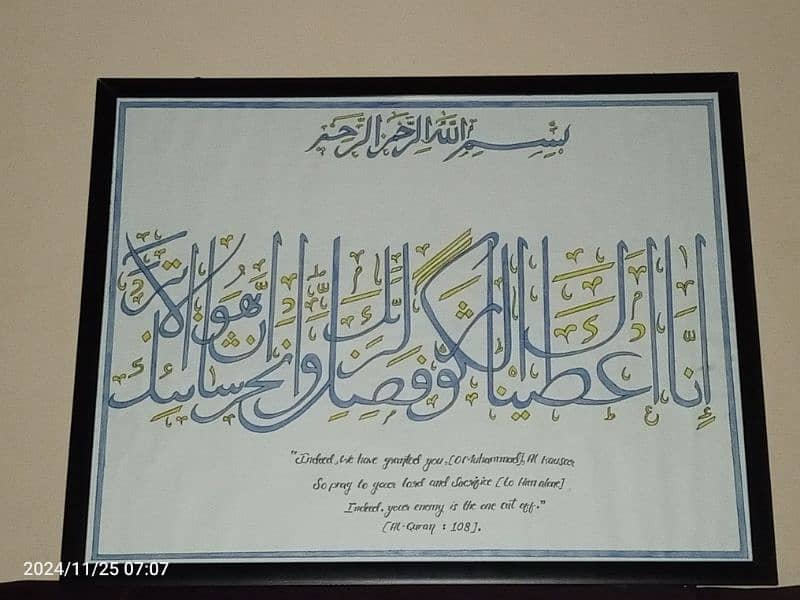 بِسْمِ اللهِ الرَّحْمٰنِ الرَّحِيْمِ
إِنَّا أَعْطَيْنَاكَ الْكَوْثَرَ فَصَلِّ لِرَبِّكَ وَانْحَرْ إِنَّ شَانِئَكَ هُوَ الْأَبْتَرُ
"Indeed, We have granted you, [O Muhammad], Al Kausar
So pray to your Lord and Sacrifice [to Him alone]
Indeed, your enemy is the one cut off."
[Al-Quran : 108].
2024/11/25 07:07